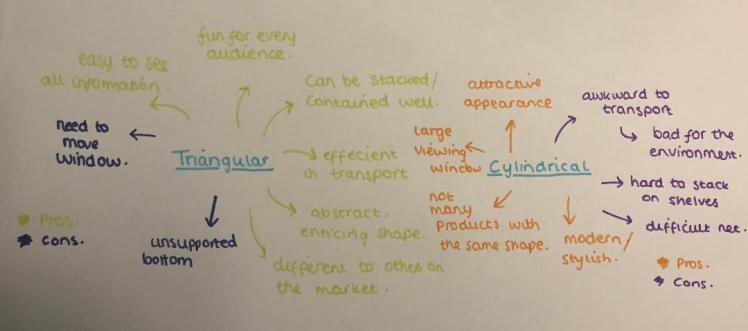 fun for every
audience.
easy to see
all information.
Can be stacked/
Contained well.
need to
move
window.
Triangular
effecient
in transport
abstract,
enticing shape.
unsupported
bottom
different to othes on
the market.
Pros.
Cons.
attractive
appearance
awkward to
transport
bad for the
environment.
large
viewing
window
Cylindrical
hard to stack
on shelves
not
many
products with
the same shape.
modern/
stylish.
difficult net.
Pros.
Cons.